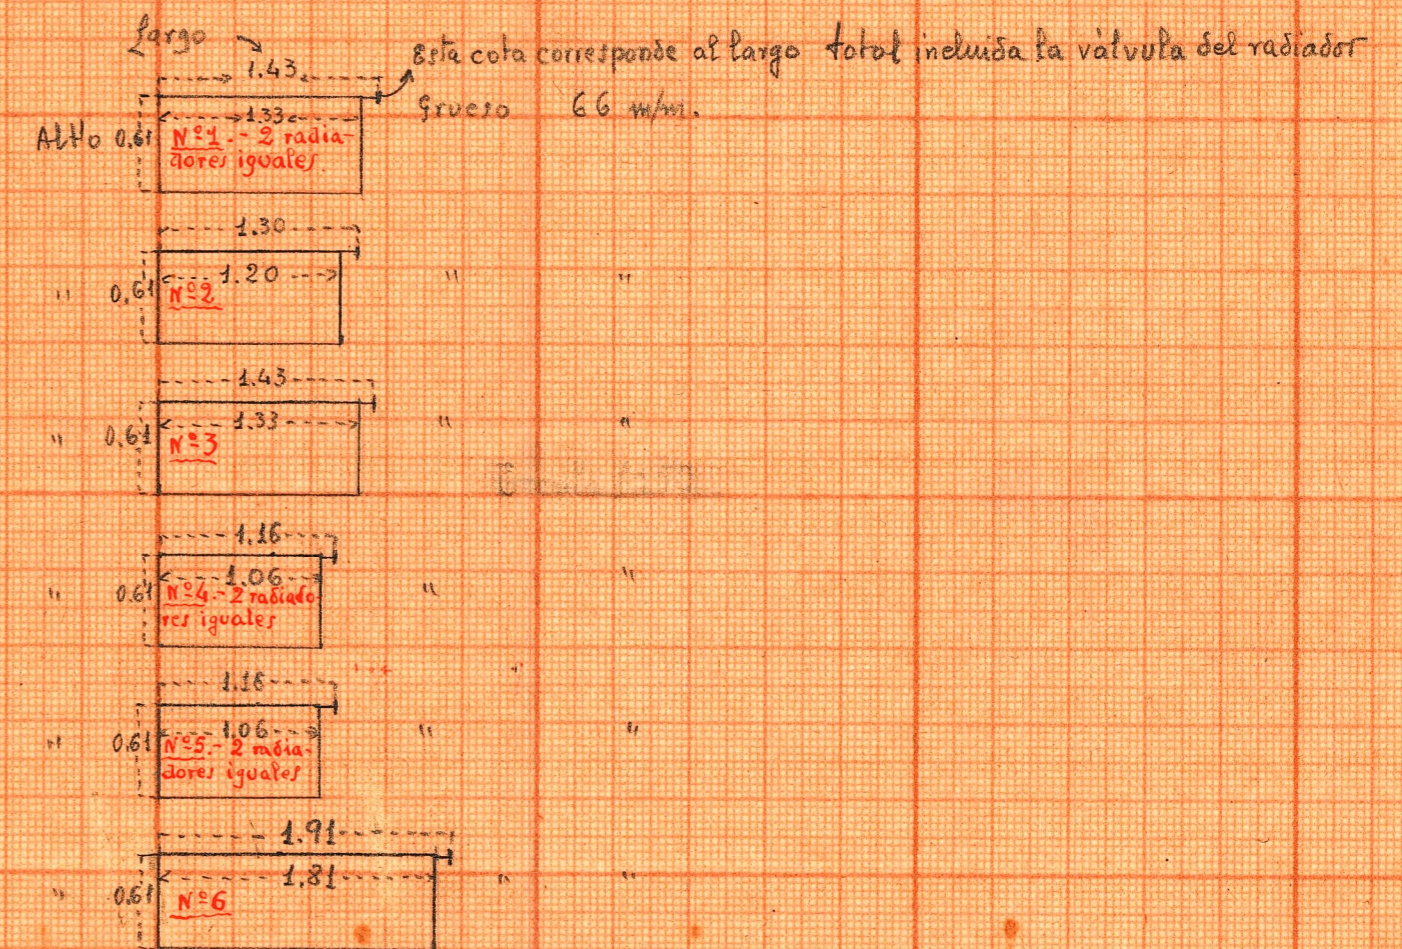 Largo
1.43
Esta cota corresponde al largo total incluida la válvula del radiador
1.33
Grueso 66 m/m.
Alto 0.61
Nº1.- 2 radia-
dores iguales.
1.30
1.20
" 0.61 " "
Nº2
1.43
1.33
" 0.61 " "
Nº3
1.16
1.06
" 0.61 " "
Nº4.- 2 radiado-
res iguales
1.16
1.06
" 0.61 " "
Nº5.- 2 radia-
dores iguales
1.91
1.81
" 0.61 " "
Nº6